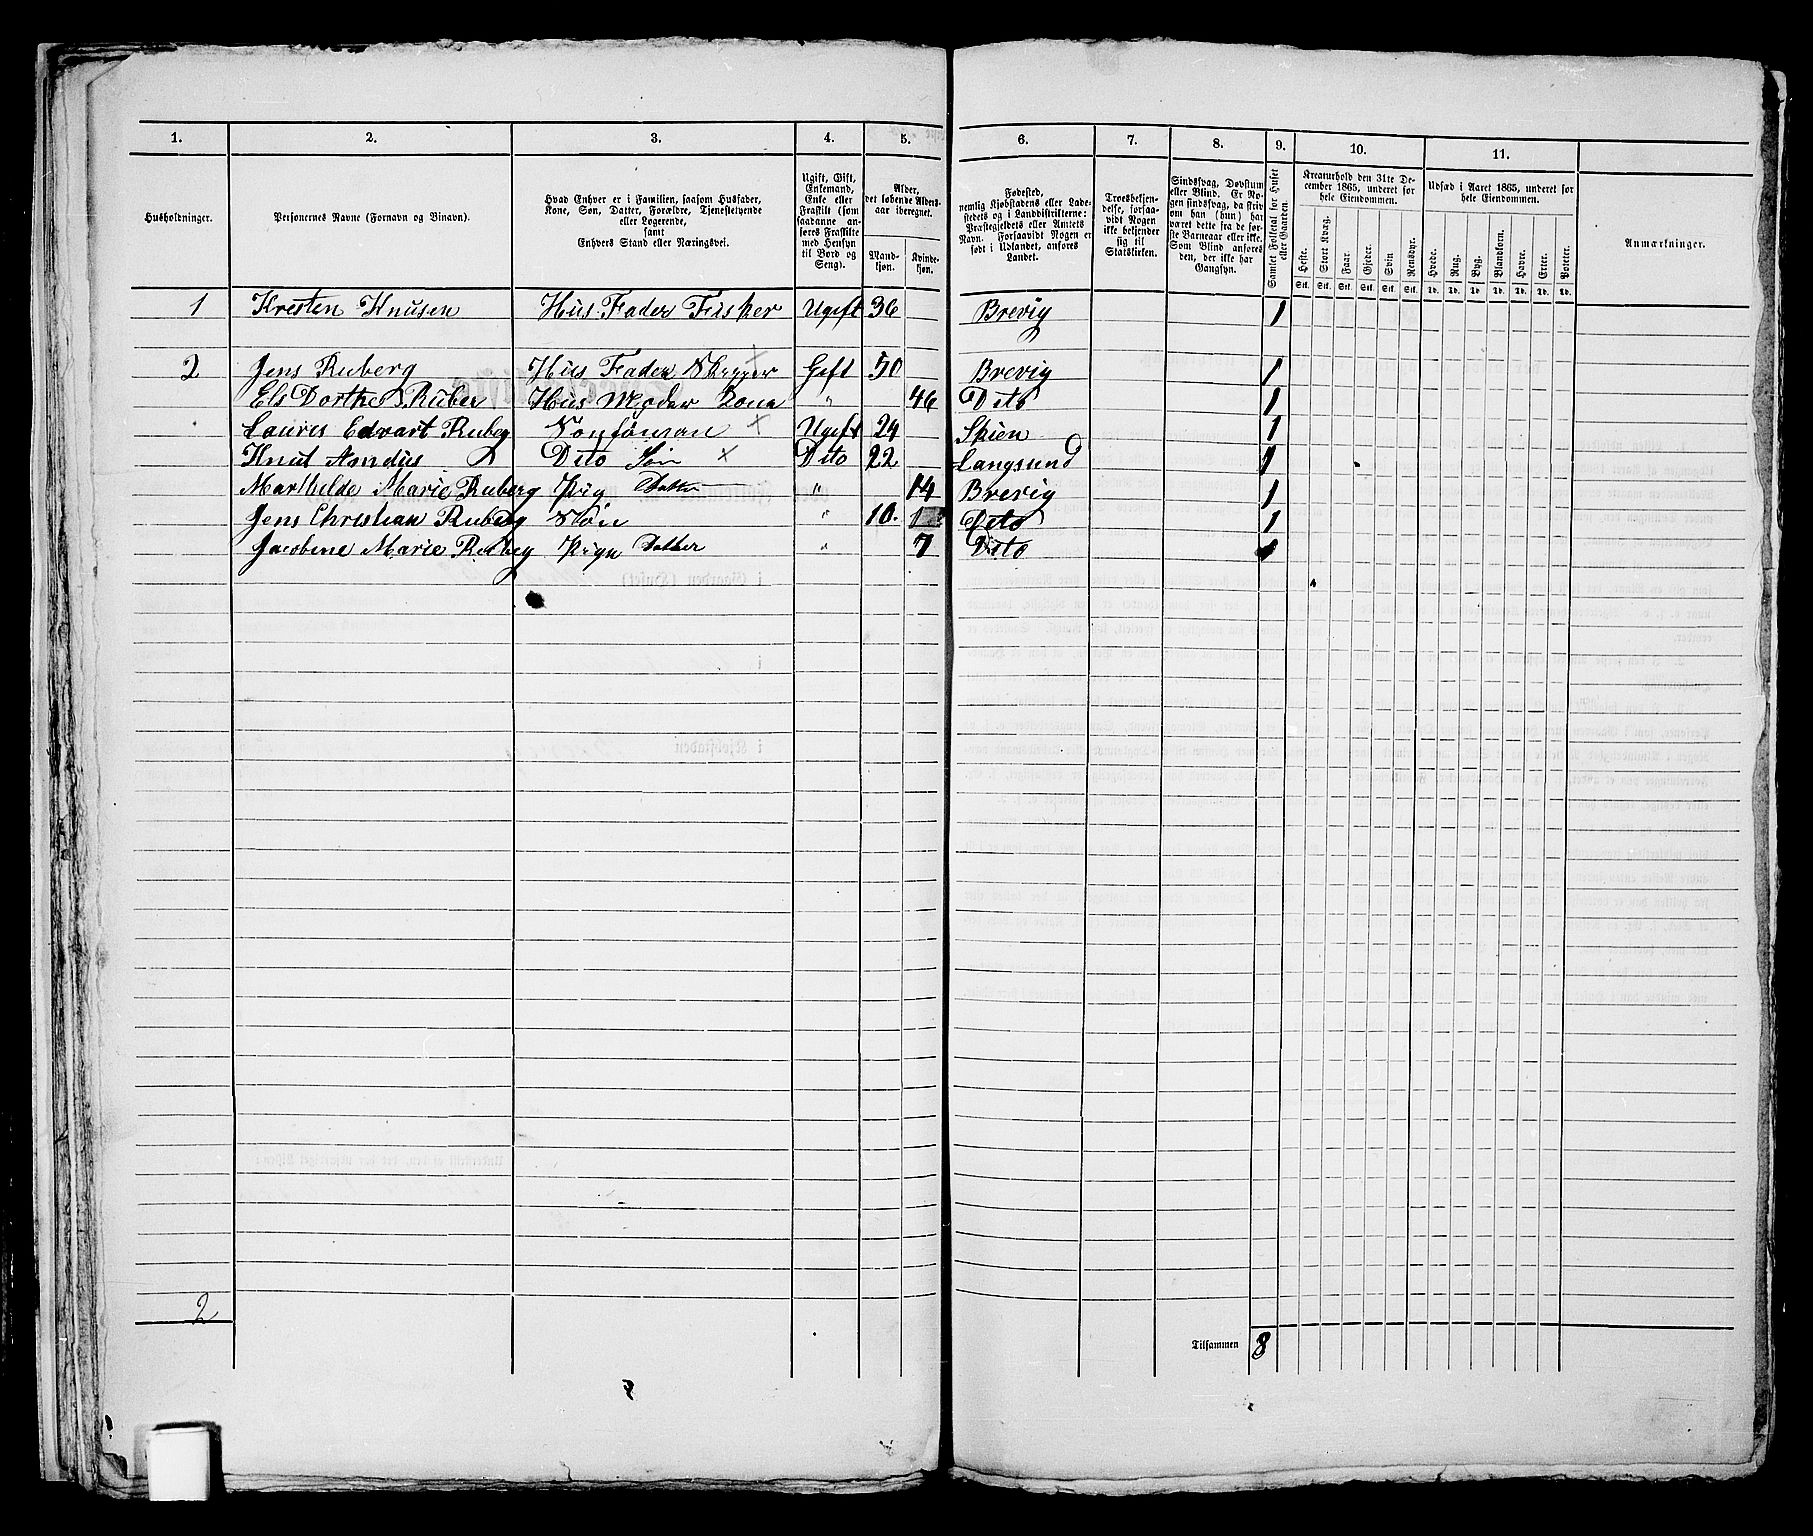 1. 2. 3. 4. 5. 6. 7. 8. 9. 10. 11.
Husholdninger.
Personernes Navne (Fornavn og Binavn).
Hvad Enhver er i Familien, saasom Husfader,
Kone, Søn, Datter, Forældre, Tjenestetyende
eller Logerende,
samt
Enhvers Stand eller Næringsvei.
Ugift, Gift,
Enkemand,
Enke eller
Fraskilt (som
saadanne an-
føres Fraskilte
med Hensyn
til Bord og
Seng).
Alder,
det løbende Alders-
aar iberegnet.
Mand-
kjøn.
Kvinde-
kjøn.
Fødested,
nemlig Kjøbstadens eller Lade-
stedets og i Landdistrikterne:
Præstegjeldets eller Amtets
Navn. Forsaavidt Nogen er
født i Udlandet, anføres
Landet.
Troesbekjen-
delse, forsaa-
vidt Nogen
ikke bekjender
sig til
Statskirken.
Sindssvag, Døvstum
eller Blind. Er No-
gen sindssvag, da skriv
om han (hun) har
været dette fra de før-
ste Barneaar eller ikke.
Som Blind anføres
den, der ikke har
Gangsyn.
Samlet Folketal for Huset
eller Gaarden.
Kreaturhold den 31te De-
cember 1865, underet for
hele Eiendommen.
Heste. Stort Kvæg. Faar. Gjeder. Svin Rensdyr.
Stk. Stk. Stk. Stk. Stk. Stk.
Udsæd i Aaret 1865, underet for
hele Eiendommen.
Hvede. Rug. Byg. Blandkorn. Havre. Erter. Poteter.
Td. Td. Td. Td. Td. Td. Td.
Anmærkninger.
1 Kresten Knusen Hus Fader Fisker Ugift 36 Brevig 1
2 Jens Ruberg Hus Fader Gift 50 Brevig 1
Els Dorthe Ruber Hus Moder Kona " 46 Dito 1
Lauris Edvart Ruberg Ugift 24 Skien 1
Knut Amdus Dito Søn × Dito 22 Langsund 1
Marthilde Marie Ruberg Pig Datter " 14 Brevig 1
Jens Christian Ruberg Søn " 10. Dito 1
Jacobine Marie Ruberg Piga Datter " 7 Dito 1
2
Tilsammen 8